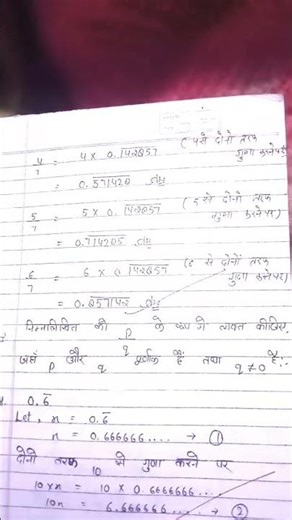 4/7 = 4 × 0.142857 (4 से दोनो तरफ गुणा करनेपर)
= 0.571428
5/7 = 5 × 0.142857 (5 से दोनों तरफ गुणा करनेपर)
= 0.714285
6/7 = 6 × 0.142857 (6 से दोनों तरफ गुणा करनेपर)
= 0.857142
निम्नलिखित को p/q के रूप में व्यक्त कीजिए,
जहाँ p और q पूर्णांक हैं तथा q ≠ 0 है:-
0.6̅
Let, n = 0.6̅
n = 0.666666.... → ①
दोनो तरफ 10 से गुणा करने पर
10×n = 10 × 0.6666666...
10n = 6.666666... → ②